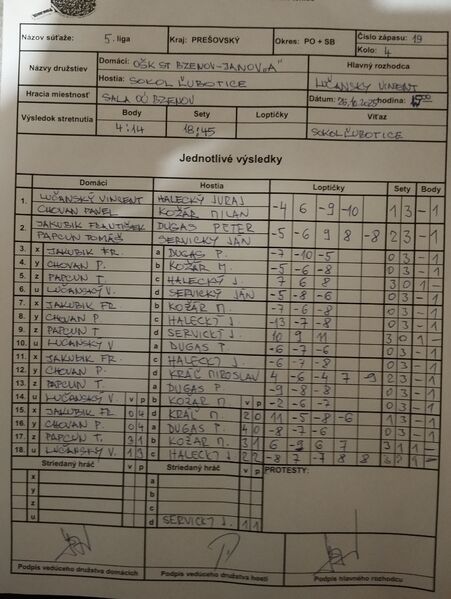 Názov súťaže: 5. liga Kraj: PREŠOVSKÝ Okres: PO + SB Číslo zápasu: 19
Kolo: 4
Názvy družstiev Domáci: OŠK ST BZENOV-JANOV „A" Hlavný rozhodca
Hostia: SOKOL ĽUBOTICE LUČANSKÝ VINSENT
Hracia miestnosť SALA OÚ BZENOV Dátum: 25.10.2025 hodina:
Výsledok stretnutia Body Sety Loptičky Víťaz
4:14 18:45 SOKOL ĽUBOTICE
Jednotlivé výsledky
Domáci Hostia Loptičky Sety Body
1. LUČANSKÝ VINSENT HALECKÝ JURAJ -4 6 -9 -10 1 3 - 1
CHOVAN PAVEL KOŽÁR MILAN
2. JAKUBIK FRANTIŠEK DUGAS PETER -5 -6 9 8 -8 2 3 - 1
PAPCUN TOMÁŠ SERVICKÝ JÁN
3. x JAKUBIK FR. a DUGAS P. -7 -10 -5 0 3 - 1
4. y CHOVAN P. b KOŽÁR M. -5 -6 -8 0 3 - 1
5. z PAPCUN T. c HALECKÝ J. 7 6 8 3 0 1 -
6. u LUČANSKÝ V. d SERVICKÝ JÁN -5 -8 -6 0 3 - 1
7. x JAKUBIK FR. b KOŽÁR M. -7 -6 -8 0 3 - 1
8. y CHOVAN P c HALECKÝ J. -13 -7 -8 0 3 - 1
9. z PAPCUN T. d SERVICKÝ J. 10 9 11 3 0 1 -
10. u LUČANSKÝ V a DUGAS -6 -7 -6 0 3 - 1
11. x JAKUBIK FR. c HALECKÝ J. -6 -7 -8 0 3 - 1
12. y CHOVAN P. d KRÁĽ MIROSLAV 4 -6 -4 7 -9 2 3 - 1
13. z PAPCUN T. a DUGAS P -9 -8 -8 0 3 - 1
14. u LUČANSKÝ V. v p b KOŽÁR M v p -2 -6 -7 0 3 - 1
15. x JAKUBIK FR. 0 4 d KRÁĽ M. 2 0 11 -5 -8 -6 1 3 - 1
16. y CHOVAN P. 0 4 a DUGAS P. 4 0 -8 -7 -6 0 3 - 1
17. z PAPCUN T. 3 1 b KOŽÁR M. 3 1 6 -9 6 7 3 1 1 -
18. u LUČANSKÝ V. 1 3 c HALECKÝ J. 2 2 -8 7 -7 8 8 3 2 1 -
Striedaný hráč v p Striedaný hráč v p PROTESTY:
x a
y b
z c
u d SERVICKÝ J. 1 1
Podpis vedúceho družstva domácich Podpis vedúceho družstva hostí Podpis hlavného rozhodcu